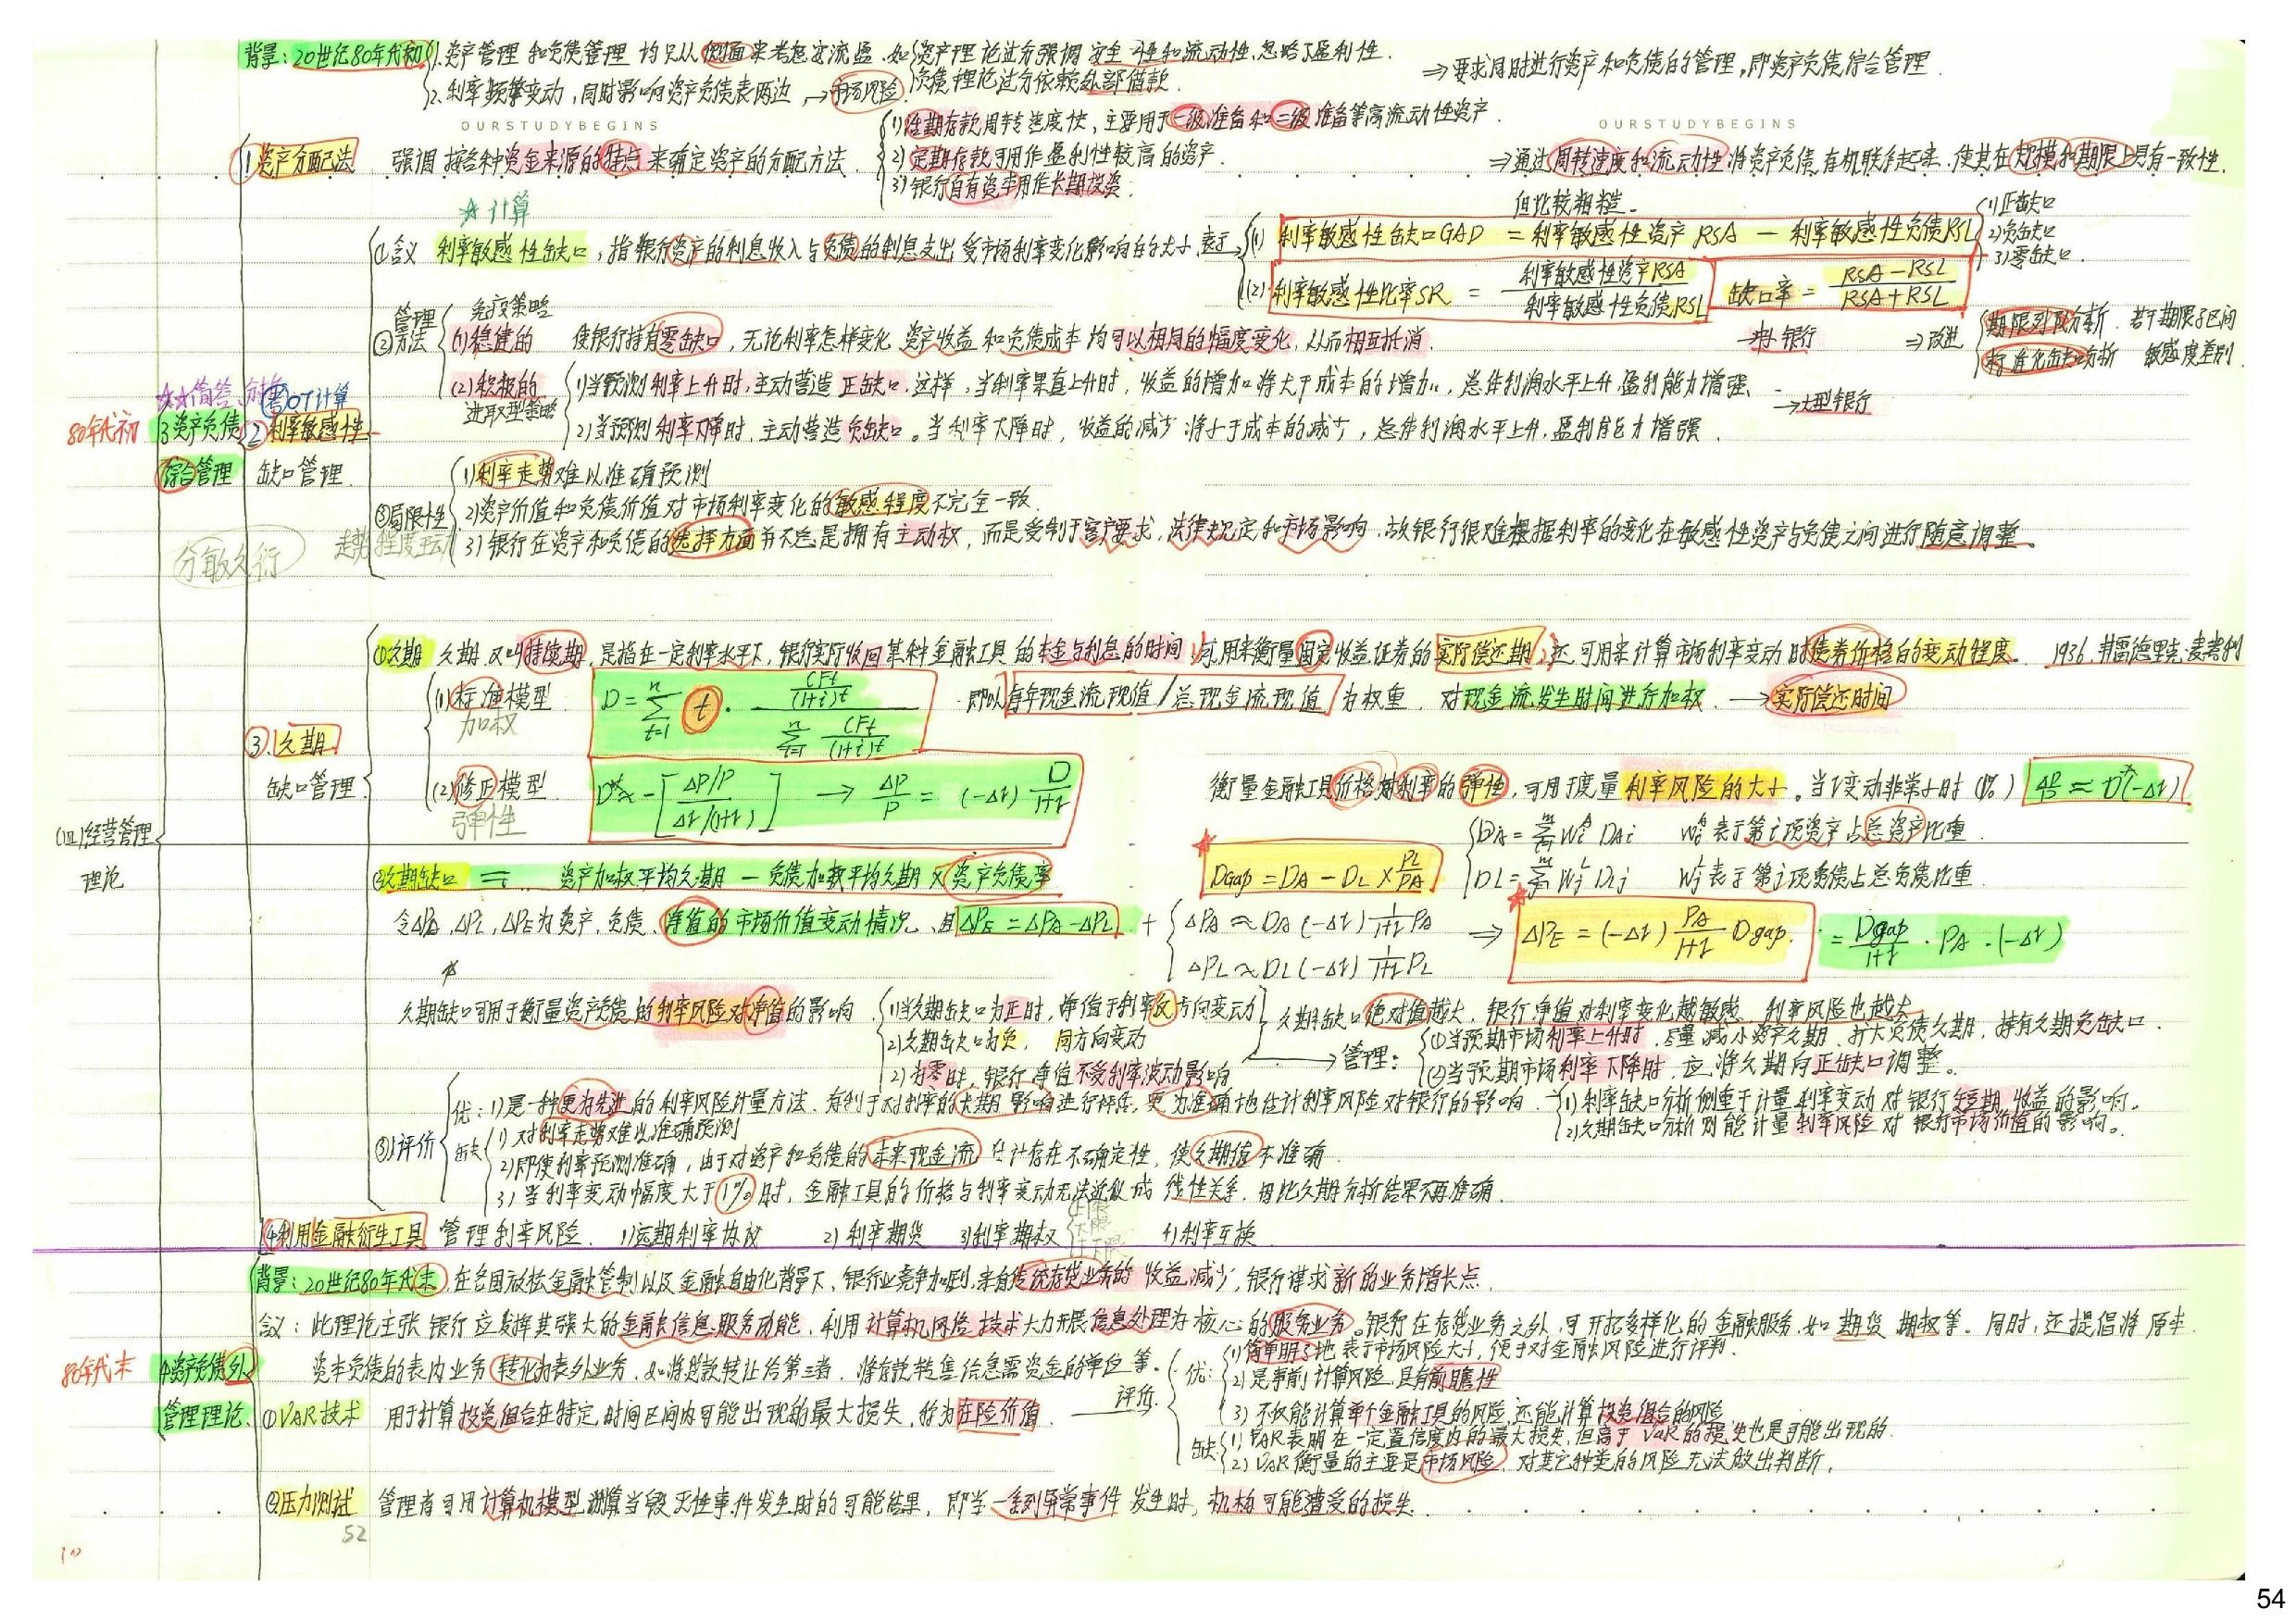 背景：20世纪80年代初 1.资产管理和负债管理均只从侧面来考虑安流盈，如 资产理论过分强调安全性和流动性，忽略了盈利性.
负债理论过分依赖外部借款.
2.利率频繁变动，同时影响资产负债表两边 → 市场风险
⇒要求同时进行资产和负债的管理，即资产负债综合管理.
OURSTUDYBEGINS
OURSTUDYBEGINS
1.资产分配法 强调按各种资金来源的特点来确定资产的分配方法
1)活期存款周转速度快，主要用于一级准备和二级准备等高流动性资产.
2)定期存款可用作盈利性较高的资产.
3)银行自有资本用作长期投资.
⇒通过周转速度和流动性将资产负债有机联系起来，使其在规模和期限上具有一致性.
但比较粗糙.
☆计算
①含义 利率敏感性缺口，指银行资产的利息收入与负债的利息支出受市场利率变化影响的大小，表示
(1) 利率敏感性缺口GAD = 利率敏感性资产RSA - 利率敏感性负债RSL
1)正缺口
2)负缺口
3)零缺口.
(2)利率敏感性比率SR = 利率敏感性资产RSA / 利率敏感性负债RSL 缺口率 = RSA-RSL / RSA+RSL
②管理方法
免疫策略
(1)稳健的 使银行持有零缺口，无论利率怎样变化 资产收益和负债成本均可以相同的幅度变化，从而相互抵消.
→中小银行 ⇒改进
期限列段分析. 若干期限子区间
标准化缺口分析 敏感度差别.
(2)积极的 进取型策略
1)当预测利率上升时，主动营造正缺口.这样，当利率果真上升时，收益的增加将大于成本的增加，总体利润水平上升，盈利能力增强、
2)当预测利率下降时，主动营造负缺口。当利率下降时，收益的减少将小于成本的减少，总体利润水平上升，盈利能力增强.
→大型银行
☆☆简答、分析
考OT计算
80年代初 3资产负债综合管理
②利率敏感性缺口管理.
③局限性
1)利率走势难以准确预测
2)资产价值和负债价值对市场利率变化的敏感程度不完全一致.
3)银行在资产和负债的选择方面并不总是拥有主动权，而是受制于客户要求，法律规定和市场影响，故银行很难根据利率的变化在敏感性资产与负债之间进行随意调整。
分敏久衍
走势程度主动
①久期 久期，又叫持续期，是指在一定利率水平下，银行实际收回某种金融工具的本金与利息的时间 1)可用来衡量固定收益证券的实际偿还期 2)还可用来计算市场利率变动时债券价格的变动程度。 1936.弗雷德里克.麦考利
(1)标准模型 加权 D = Σ(t=1,n) t · [CFt/(1+i)^t] / [Σ(t=1,n) CFt/(1+i)^t] 即以 每年现金流现值/总现金流现值 为权重 对现金流发生时间进行加权. → 实际偿还时间
③久期缺口管理
(2)修正模型 弹性 D* = -[ΔP/P / Δr/(1+r)] → ΔP/P = (-Δr) D/1+r
衡量金融工具价格对利率的弹性，可用于度量利率风险的大小。当r变动非常小时 (1%) ΔP/P ≈ D*(-Δr)
(四)经营管理理论
②久期缺口 = 资产加权平均久期 - 负债加权平均久期 × 资产负债率
Dgap = DA - DL × PL/PA
DA = Σ Wi^A DAi Wi^A表示第i项资产占总资产比重.
DL = Σ Wj^L DLj Wj^L表示第j项负债占总负债比重.
令ΔPA，ΔPL，ΔPE为资产，负债，净值的市场价值变动情况，且 ΔPE = ΔPA - ΔPL +
ΔPA ≈ DA(-Δr) 1/1+r PA
ΔPL ≈ DL(-Δr) 1/1+r PL
⇒ ΔPE = (-Δr) PA/1+r Dgap. = Dgap/1+r · PA · (-Δr)
久期缺口可用于衡量资产负债的利率风险对净值的影响
1)当久期缺口为正时，净值于利率反方向变动
2)久期缺口为负， 同方向变动
2)为零时，银行净值不受利率波动影响
久期缺口绝对值越大，银行净值对利率变化越敏感，利率风险也越大
管理：
①当预期市场利率上升时，尽量减小资产久期，扩大负债久期，持有久期负缺口.
②当预期市场利率下降时，应将久期向正缺口调整。
③评价
优：1)是一种更为先进的利率风险计量方法.有利于对利率的长期影响进行评估，更为准确地估计利率风险对银行的影响.
1)利率缺口分析侧重于计量利率变动对银行短期收益的影响.
2)久期缺口分析则能计量利率风险对银行市场价值的影响。
缺 1)对利率走势难以准确预测
2)即使利率预测准确，由于对资产和负债的未来现金流估计存在不确定性，使久期值不准确.
3)当利率变动幅度大于1%时，金融工具的价格与利率变动无法近似成线性关系，因此久期分析结果不再准确.
④利用金融衍生工具 管理利率风险. 1)远期利率协议 2)利率期货 3)利率期权 4)利率互换.
上限
下限
上下限
背景：20世纪80年代末，在各国放松金融管制以及金融自由化背景下，银行业竞争加剧，来自传统存贷业务的收益减少，银行谋求新的业务增长点.
含义：此理论主张银行应发挥其强大的金融信息服务功能，利用计算机网络技术大力开展信息处理为核心的服务业务。银行在存贷业务之外，可开拓多样化的金融服务，如期货期权等。同时，还提倡将原本
资本负债的表内业务转化为表外业务，如将贷款转让给第三者，将存款转售给急需资金的单位等.
80年代末 4.资产负债外管理理论.
①VAR技术 用于计算投资组合在特定时间区间内可能出现的最大损失，称为在险价值.
评价.
优：1)简单明了地表示市场风险大小，便于对金融风险进行评判.
2)是事前计算风险，具有前瞻性
3)不仅能计算单个金融工具的风险，还能计算投资组合的风险
缺 1)VAR表明在一定置信度内的最大损失，但高于VaR的损失也是可能出现的.
2)VaR衡量的主要是市场风险，对其它种类的风险无法做出判断.
②压力测试 管理者可用计算机模型测算当毁灭性事件发生时的可能结果，即当一系列异常事件发生时，机构可能遭受的损失.
52
10
54